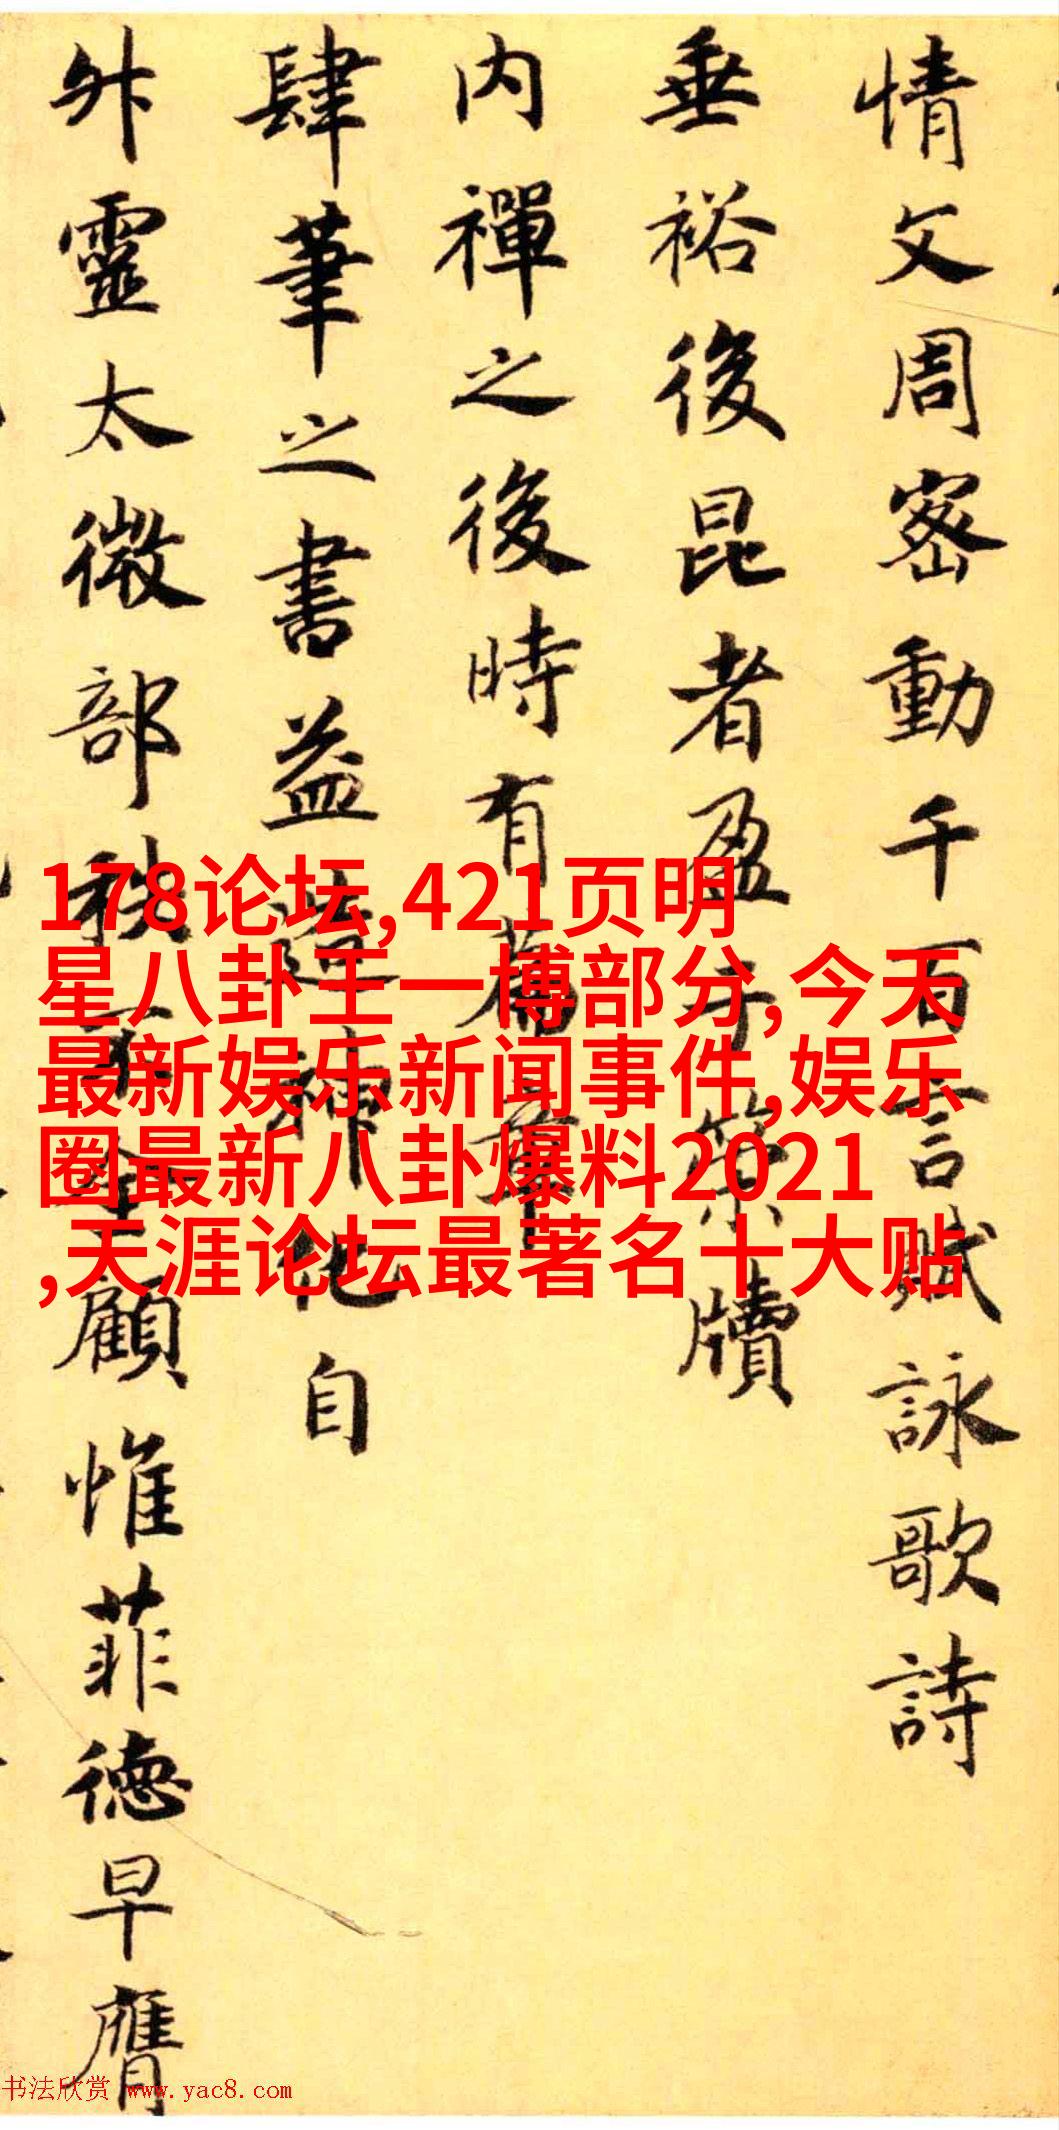 情文周密動千百言賦詠歌詩
垂裕後昆者盈于策牘
内禪之後時有篇章
肆筆之書益造神化自
外靈太微部秩顧惟菲德早膺
178论坛,421页明
星八卦王一博部分,今天
最新娱乐新闻事件,娱乐
圈最新八卦爆料2021
,天涯论坛最著名十大贴
书法欣赏 www.yac8.com